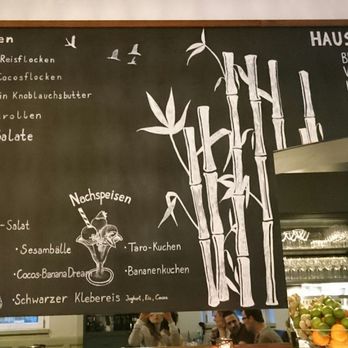 en
Reisflocken
Cocosflocken
in Knoblauchsbutter
rollen
Salate
HAUS
Nachspeisen
-Salat
· Sesambälle
· Taro-Kuchen
· Cocos-Banana Dream
· Bananenkuchen
· Schwarzer Klebereis Joghurt, Eis, Cocos